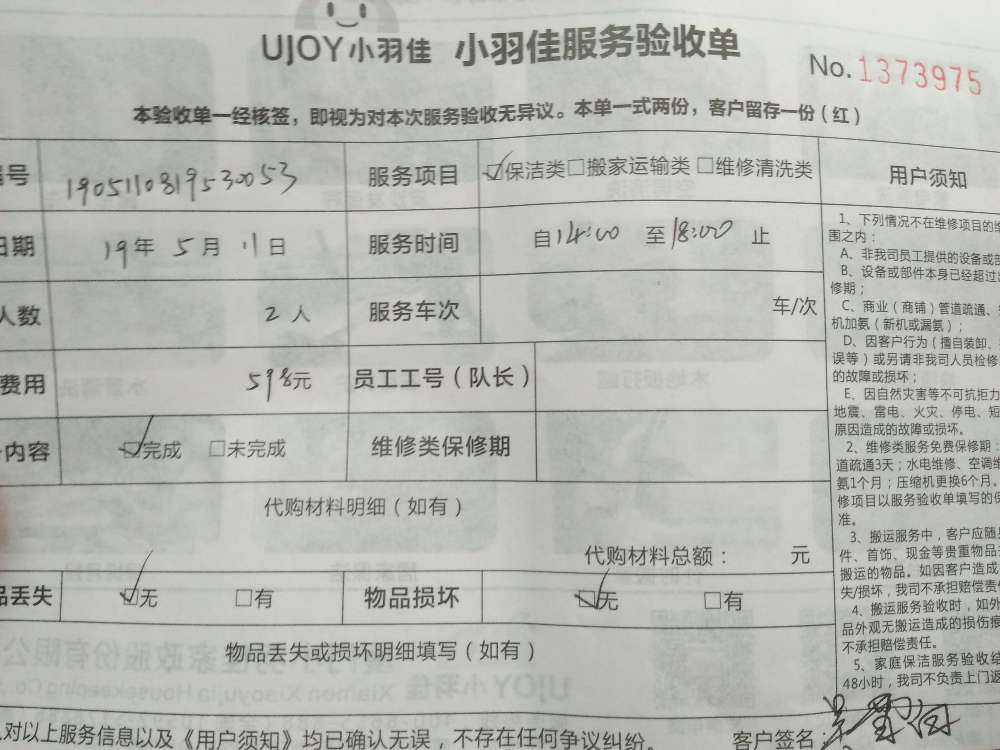 UJOY小羽佳 小羽佳服务验收单
No.1373975
本验收单一经核签，即视为对本次服务验收无异议。本单一式两份，客户留存一份（红）
号 1905110819530053 服务项目 ☑保洁类□搬家运输类□维修清洗类 用户须知
日期 19年5月11日 服务时间 自14:00 至18:00 止
人数 2人 服务车次 车/次
费用 598元 员工工号（队长）
内容 ☑完成 □未完成 维修类保修期
代购材料明细（如有）
代购材料总额： 元
品丢失 ☑无 □有 物品损坏 ☑无 □有
物品丢失或损坏明细填写（如有）
对以上服务信息以及《用户须知》均已确认无误，不存在任何争议纠纷。 客户签名：
1、下列情况不在维修项目的维
围之内：
A、非我司员工提供的设备或部
B、设备或部件本身已经超过
修期；
C、商业（商铺）管道疏通、
机加氨（新机或漏氨）；
D、因客户行为（擅自装卸、
误等）或另请非我司人员检修
的故障或损坏；
E、因自然灾害等不可抗拒力
地震、雷电、火灾、停电、短
原因造成的故障或损坏。
2、维修类服务免费保修期：
道疏通3天；水电维修、空调维
氨1个月；压缩机更换6个月。
修项目以服务验收单填写的保
准。
3、搬运服务中，客户应随
件、首饰、现金等贵重物品
搬运的物品。如因客户造成
失/损坏，我司不承担赔偿责
4、搬运服务验收时，如外
品外观无搬运造成的损伤痕
不承担赔偿责任。
5、家庭保洁服务验收结
48小时，我司不负责上门返